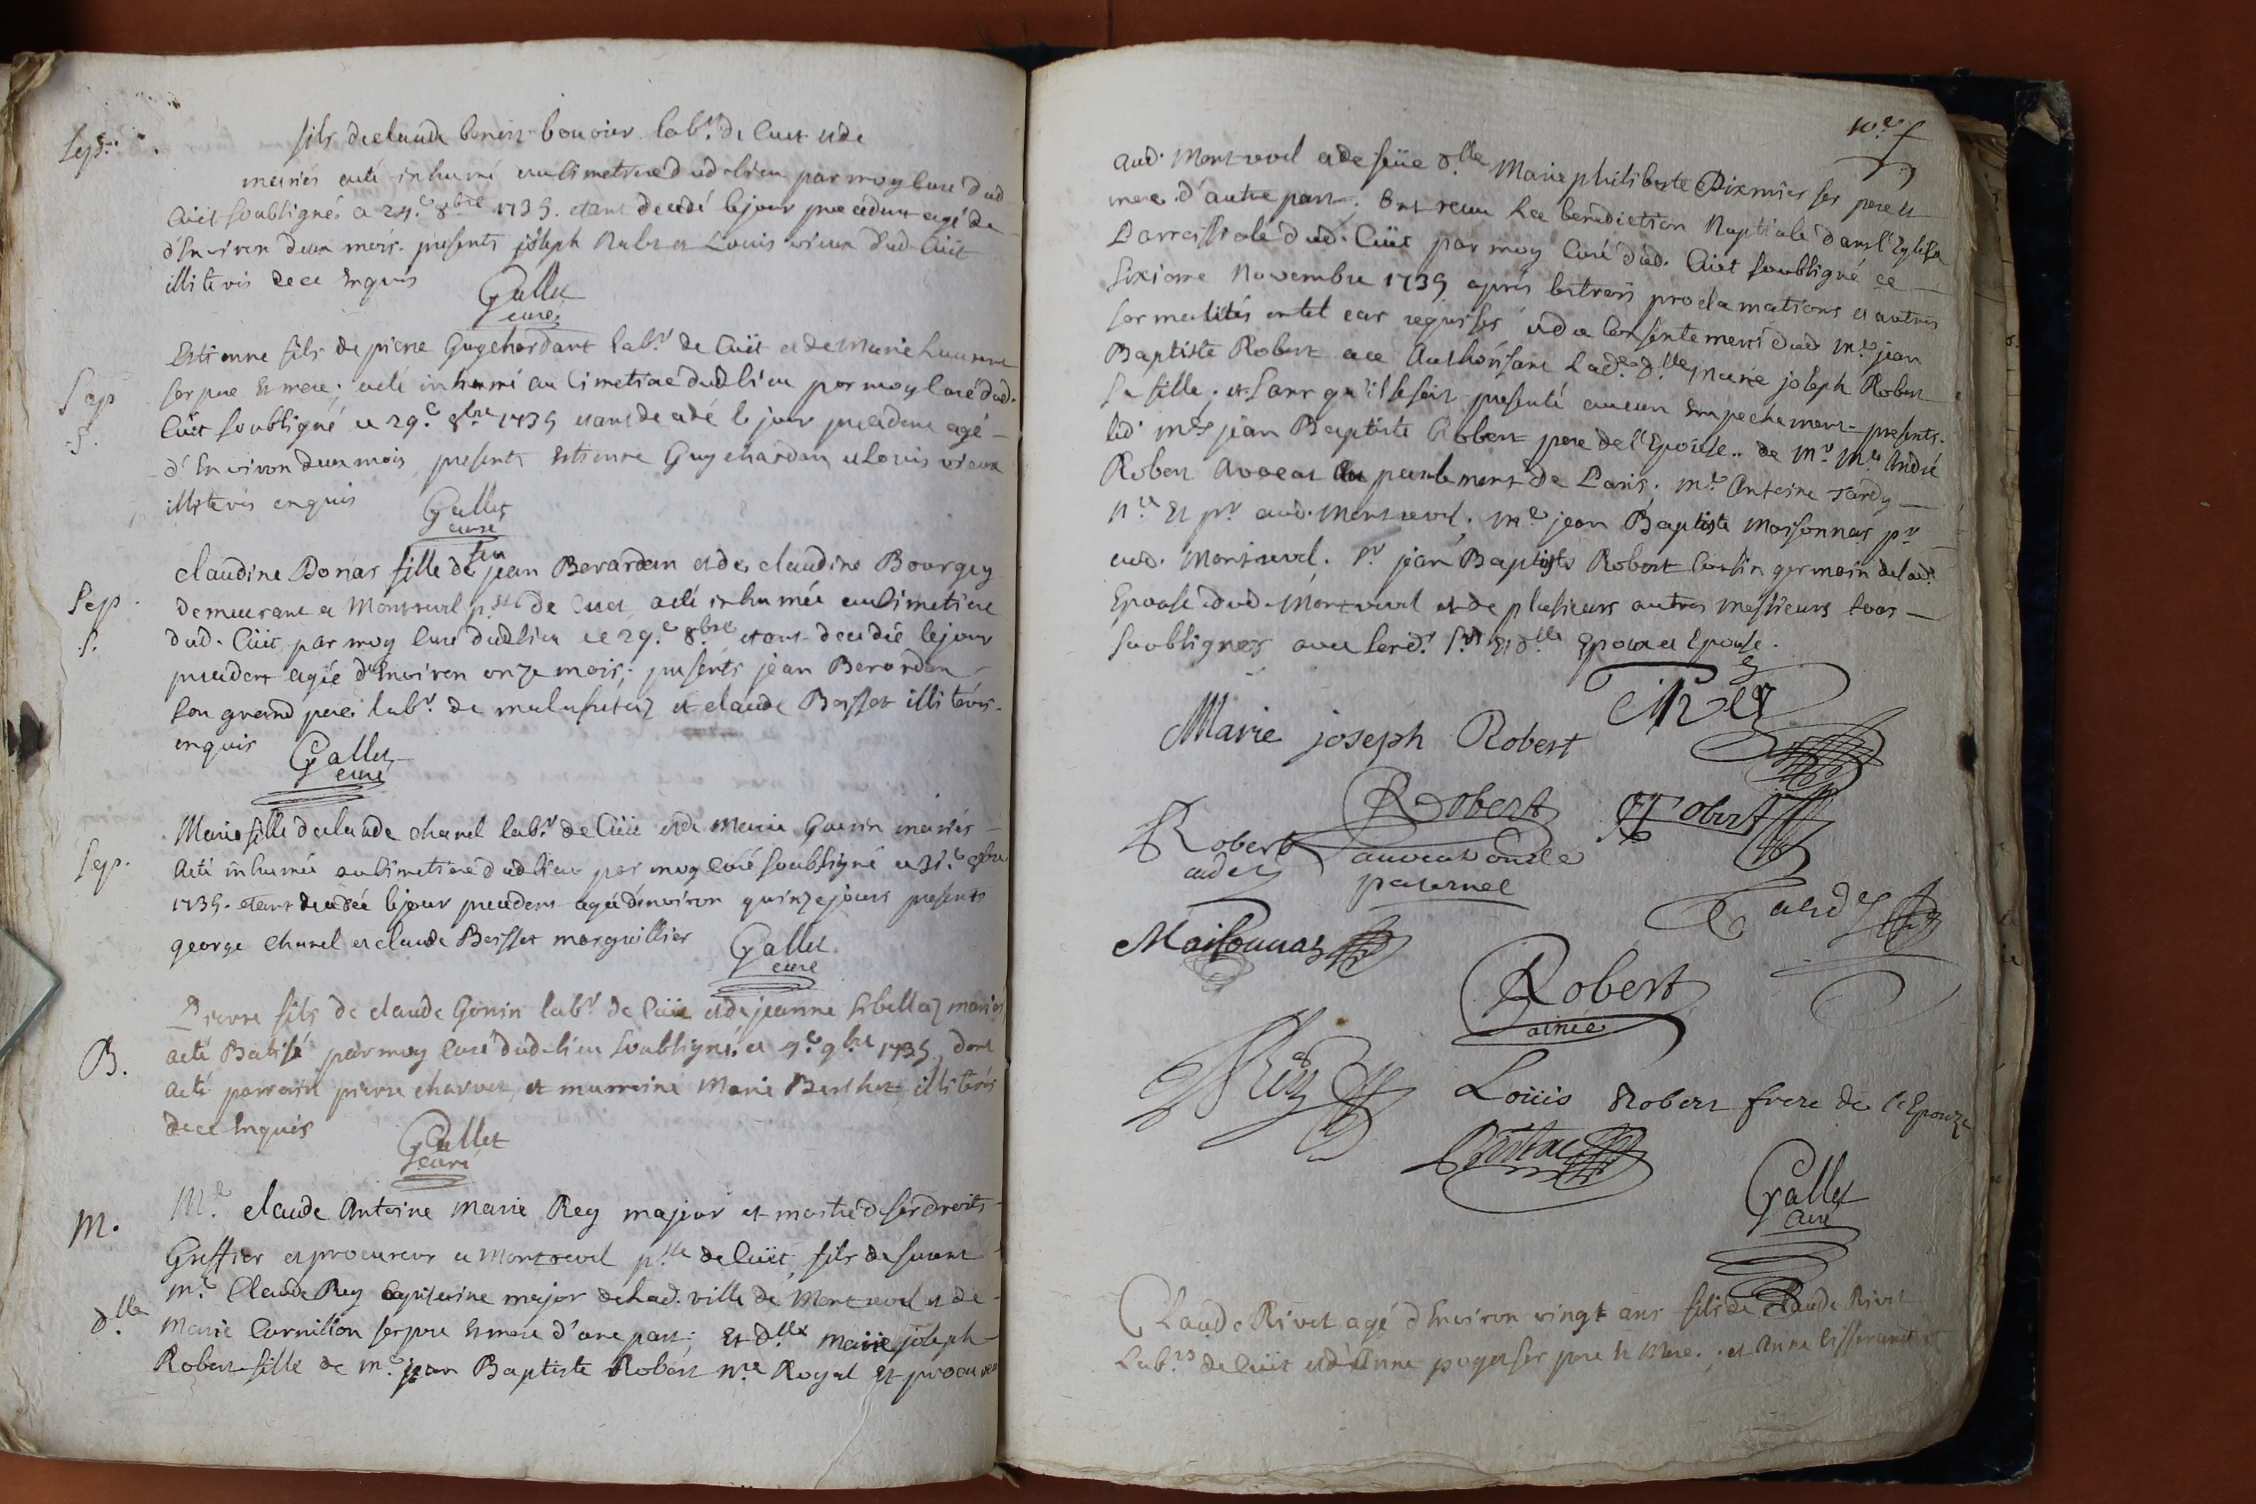 Sep.re
fils de claude benoit bouvier lab.r de Cuet et de
mariés a eté inhumé au Cimetiere dud. lieu par moy Curé dud.
Cuët soubsigné ce 24.e 8bre 1739. etant decedé le jour precedent agé de
d'Environ deux mois. presents joseph et Louis vieux dud. Cuët
illiterés de ce enquis
Gallet
curé
Sep
S.
Estienne fils de pierre Guychardant lab.r de Cuët et de Marie
ses pere Et mere; a eté inhumé au Cimetiere dud. lieu par moy Curé dud.
Cuët soubsigné ce 29.e 8bre 1739 etant decedé le jour precedent agé
d'Environ deux mois, presents Estienne Guychardan et Louis vieux
illiterés enquis
Gallet
curé
Sep.
S.
claudine Donas fille de feu jean Berardan et de claudine Bourgey
demeurant a Montrevel p.sse de Cuet a eté inhumée au Cimetiere
dud. Cuët par moy Curé dud. lieu ce 29.e 8bre etant decedée le jour
precedent agée d'Environ onze mois; presents jean Berardan
son grand pere lab.r de et claude Boisset illiterés
enquis
Gallet
curé
Sep.
Marie fille de claude charel lab.r de Cuët et de Marie Guerin mariés
a eté inhumée au Cimetiere dud. lieu par moy Curé soubsigné ce 31.e 8bre
1739. etant decedée le jour precedent agée d'environ quinze jours presents
george Charel et claude Boisset marguillier
Gallet
curé
B.
Pierre fils de claude Gonin lab.r de Cuët et de jeanne Sibellaz mariés
a eté Batisé par moy Curé dud. lieu soubsigné ce 4.e 9bre 1739, dont
a eté parrain pierre charvet, et marraine Marie Berthet illiterés
de ce Enquis
Gallet
curé
M.
M.e claude Antoine Marie Rey majeur et maitre de ses droits
Greffier et procureur a Montrevel p.sse de Cuët, fils de feu
M.e Claude Rey Capitaine major de lad. ville de Montrevel et de
d.lle
Marie Cornillon ses pere Et mere d'une part; Et d.lle Marie joseph
Robert fille de m.e jean Baptiste Robert n.re Royal Et procureur
aud. Montrevel et de feüe d.lle Marie philiberte Dixmier ses pere et
mere d'autre part. Ont receu La benediction Nuptiale dans l'Eglise
Parroissiale dud. Cuët par moy Curé dud. Cuët soubsigné ce
sixieme Novembre 1739 aprés les trois proclamations et autres
formalités en tel cas requises et du Consentement dud. M.e jean
Baptiste Robert a ce Authorisant lad. d.lle Marie joseph Robert
sa fille; et sans qu'il se soit presenté aucun Empechement presents
led. m.e jean Baptiste Robert pere de l'Epouse.. de M.r M.e André
Robert Avocat au parlement de Paris; m.e Antoine Tardy
n.re Et p.r aud. Montrevel. M.e jean Baptiste Maisonnas p.r
aud. Montrevel. S.r jean Baptiste Robert Cousin germain de lad.
Epouse dud. Montrevel et de plusieurs autres Messieurs tous
soubsignés avec lesd. S.r Et d.lle Epoux et Epouse.
Rey
Marie joseph Robert
Robert
Robert
Robert
cadet
avocat oncle
paternel
Tardy
Maisonnas
Robert
ainée
Rey
Loüis Robert frere de l'Epouze
Gallet
Curé
Claude Rivet agé d'Environ vingt ans fils de Claude Rivet
Lab.r de Cuët et d'Anne ses pere Et Mere; et Anne